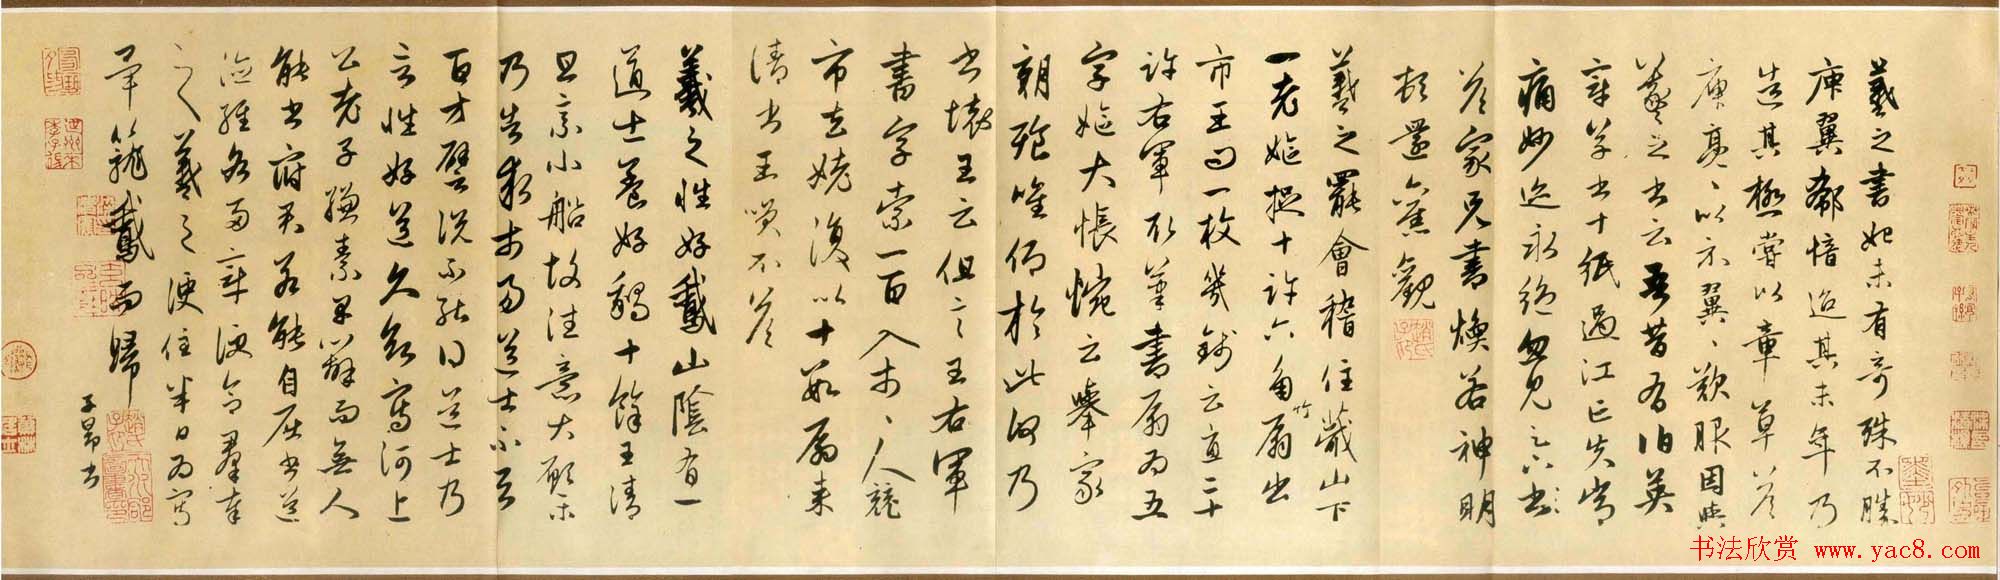 羲之書始未有奇殊不勝
庾翼郗愔迨其末年乃
造其極嘗以章草答
庾亮、以示翼、歎服因與
羲之書云吾昔有伯英
章草書十紙過江亡失常
痛妙迹永絕忽見足下書
答家兄書煥若神明
頓還舊觀
羲之罷會稽住蕺山下
一老嫗捉十許六角竹扇出
市王問一枚幾錢云直二十
許右軍取筆書扇為五
字嫗大悵惋云舉家
朝飱唯仰於此何乃
書壞王云但言王右軍
書字索一百入市、人競
市去姥復以十數扇來
請書王笑不答
羲之性好鵞山陰有一
道士養好鵝十餘王清
旦乘小船故往意大願樂
乃告求市易道士不與
百方譬說不能得道士乃
言性好道久欲寫河上
公老子縑素早辦而無人
能書府君若能自屈書道
德經各兩章便合羣奉
之羲之便住半日為寫
畢籠鵞而歸
子昂書
书法欣赏 www.yac8.com